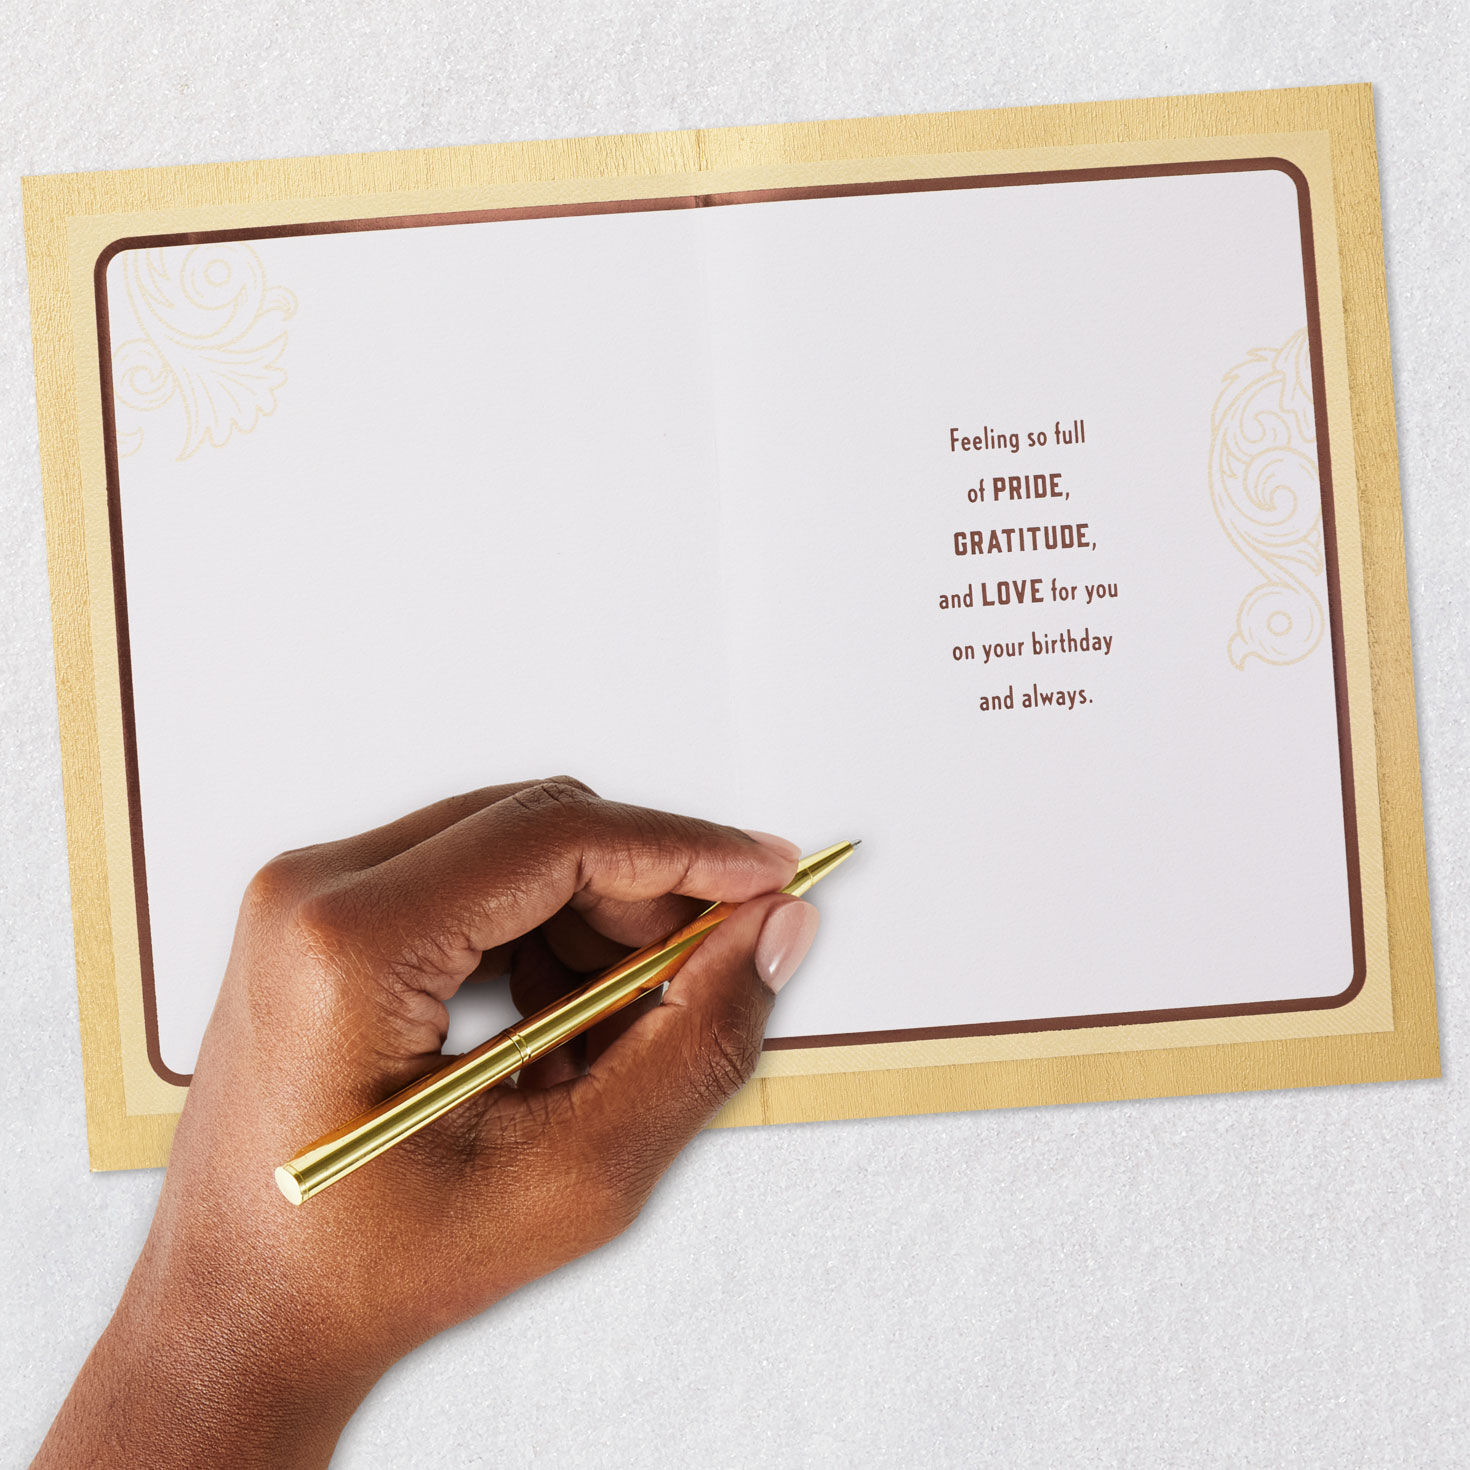 Feeling so full
of PRIDE,
GRATITUDE,
and LOVE for you
on your birthday
and always.